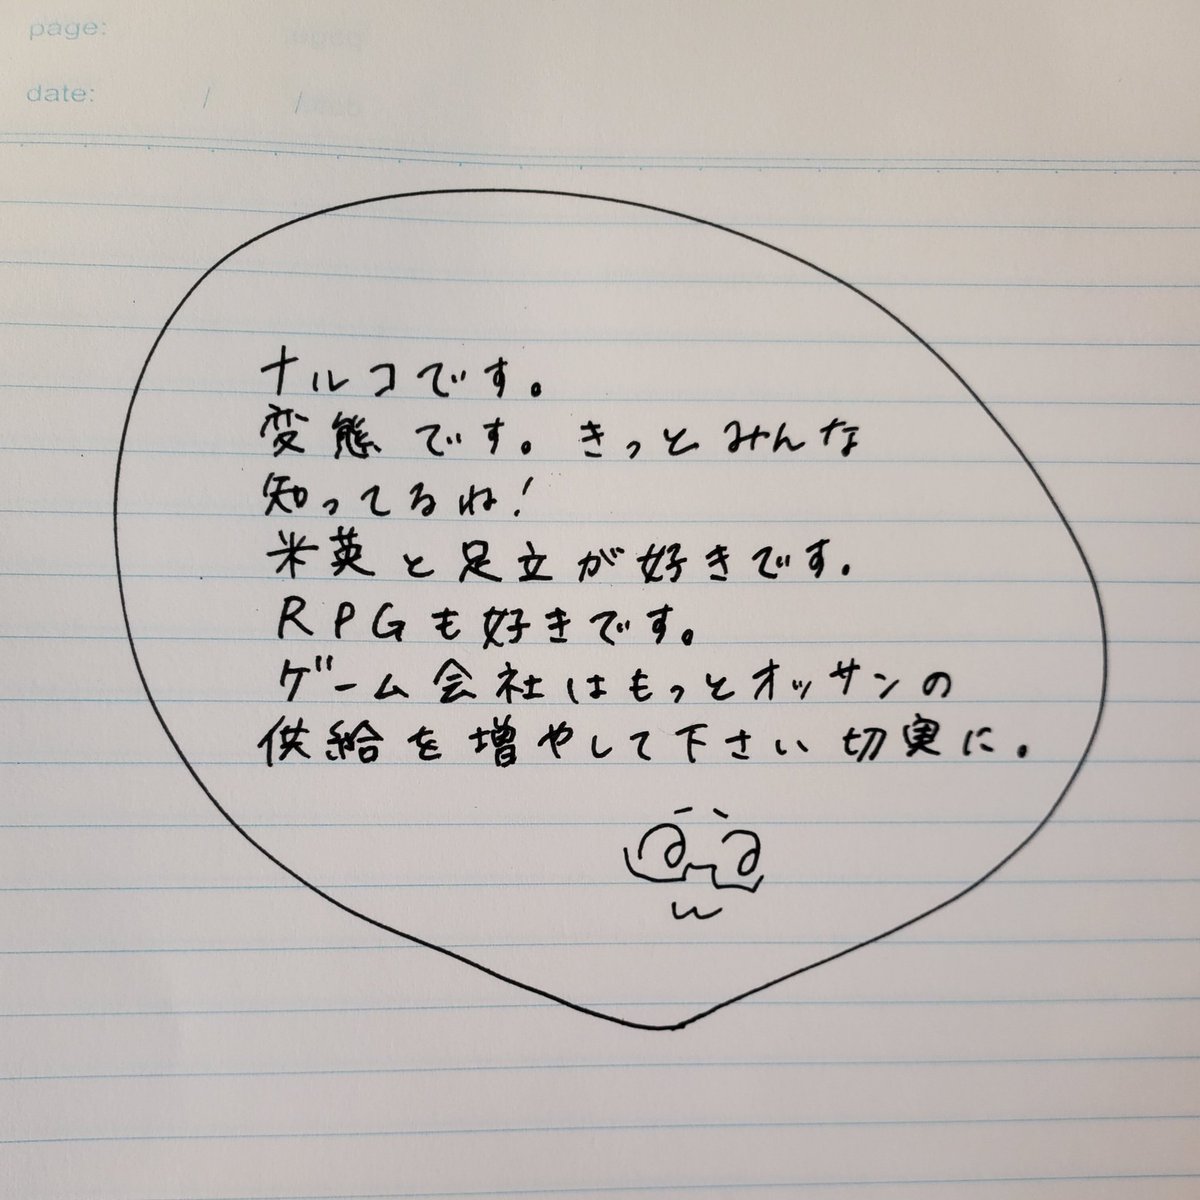 page:
date: / /
ナルコです。
変態です。きっとみんな
知ってるね!
米英と足立が好きです。
RPGも好きです。
ゲーム会社はもっとオッサンの
供給を増やして下さい切実に。